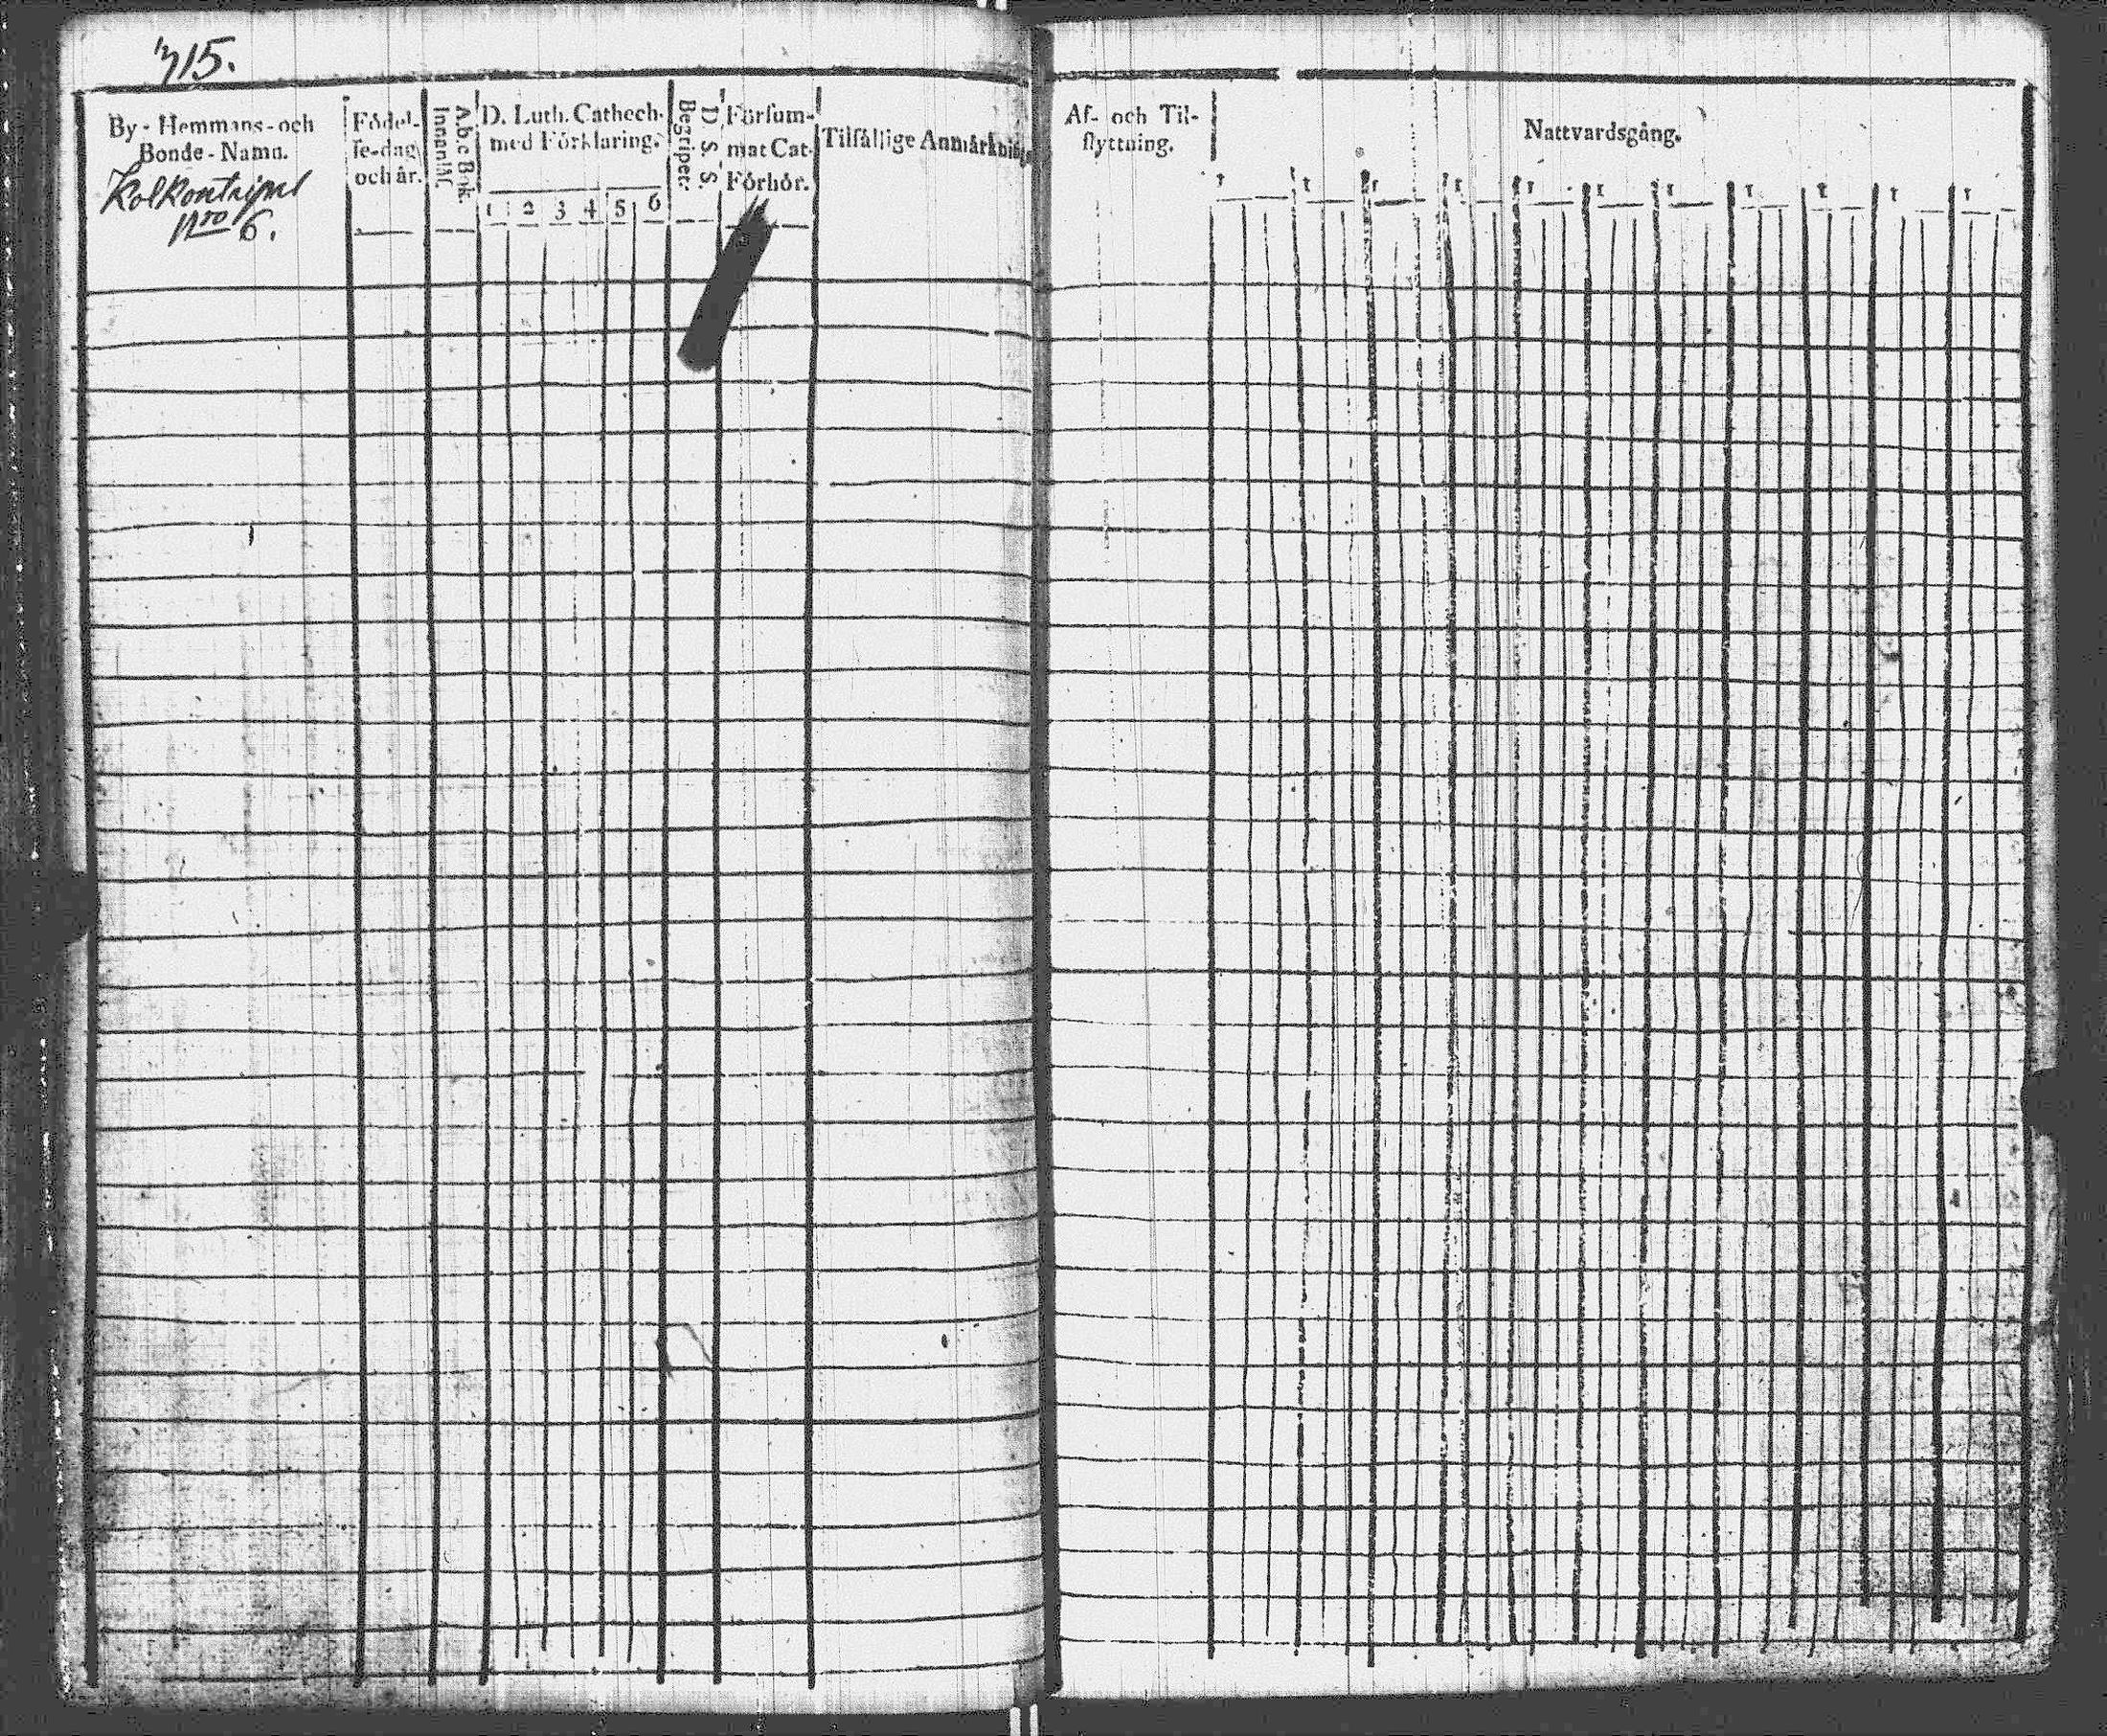 715.
By - Hemmans - och
Bonde - Namn.
N:ro 6.
Födel-
se-dag
och år.
A.b.c Bok.
Innanläs.
D. Luth. Cathech.
med Förklaring.
1 2 3 4 5 6
D. S. S.
Begriper.
Försum-
mat Cat.
Förhör.
Tilfällige Anmärkning
Af- och Til-
flyttning.
Nattvardsgång.
1 1 1 1 1 1 1 1 1 1 1